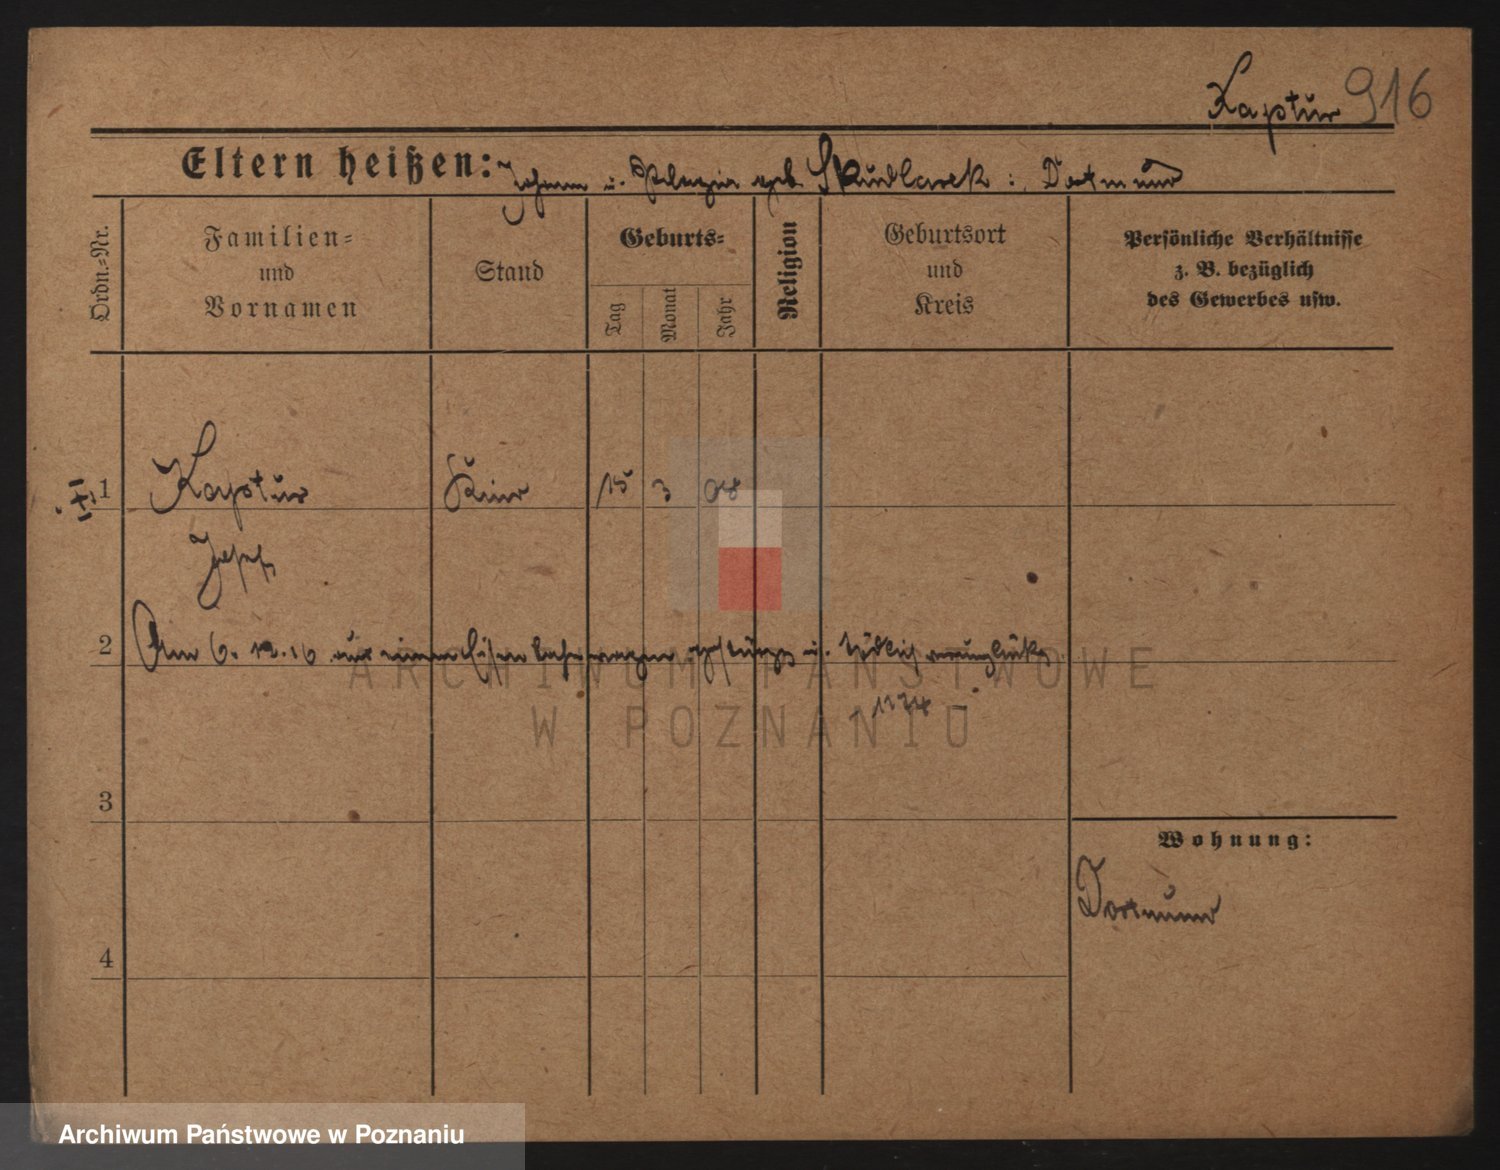 Kaptur 916
Eltern heißen: Johann u. Pelagia geb. Skudlarek : Dortmund
Ordn.-Nr.
Familien-
und
Vornamen
Stand
Geburts-
Tag
Monat
Jahr
Religion
Geburtsort
und
Kreis
Persönliche Verhältnisse
z. B. bezüglich
des Gewerbes usw.
1 Kaptur Kind 15 3 08
Josef
2 Am 6. 12. 16 von einem Eisenbahnwagen gestürzt u. tödlich verunglückt
ARCHIWUM PAŃSTWOWE
W POZNANIU
3
Wohnung:
Dortmund
4
Archiwum Państwowe w Poznaniu